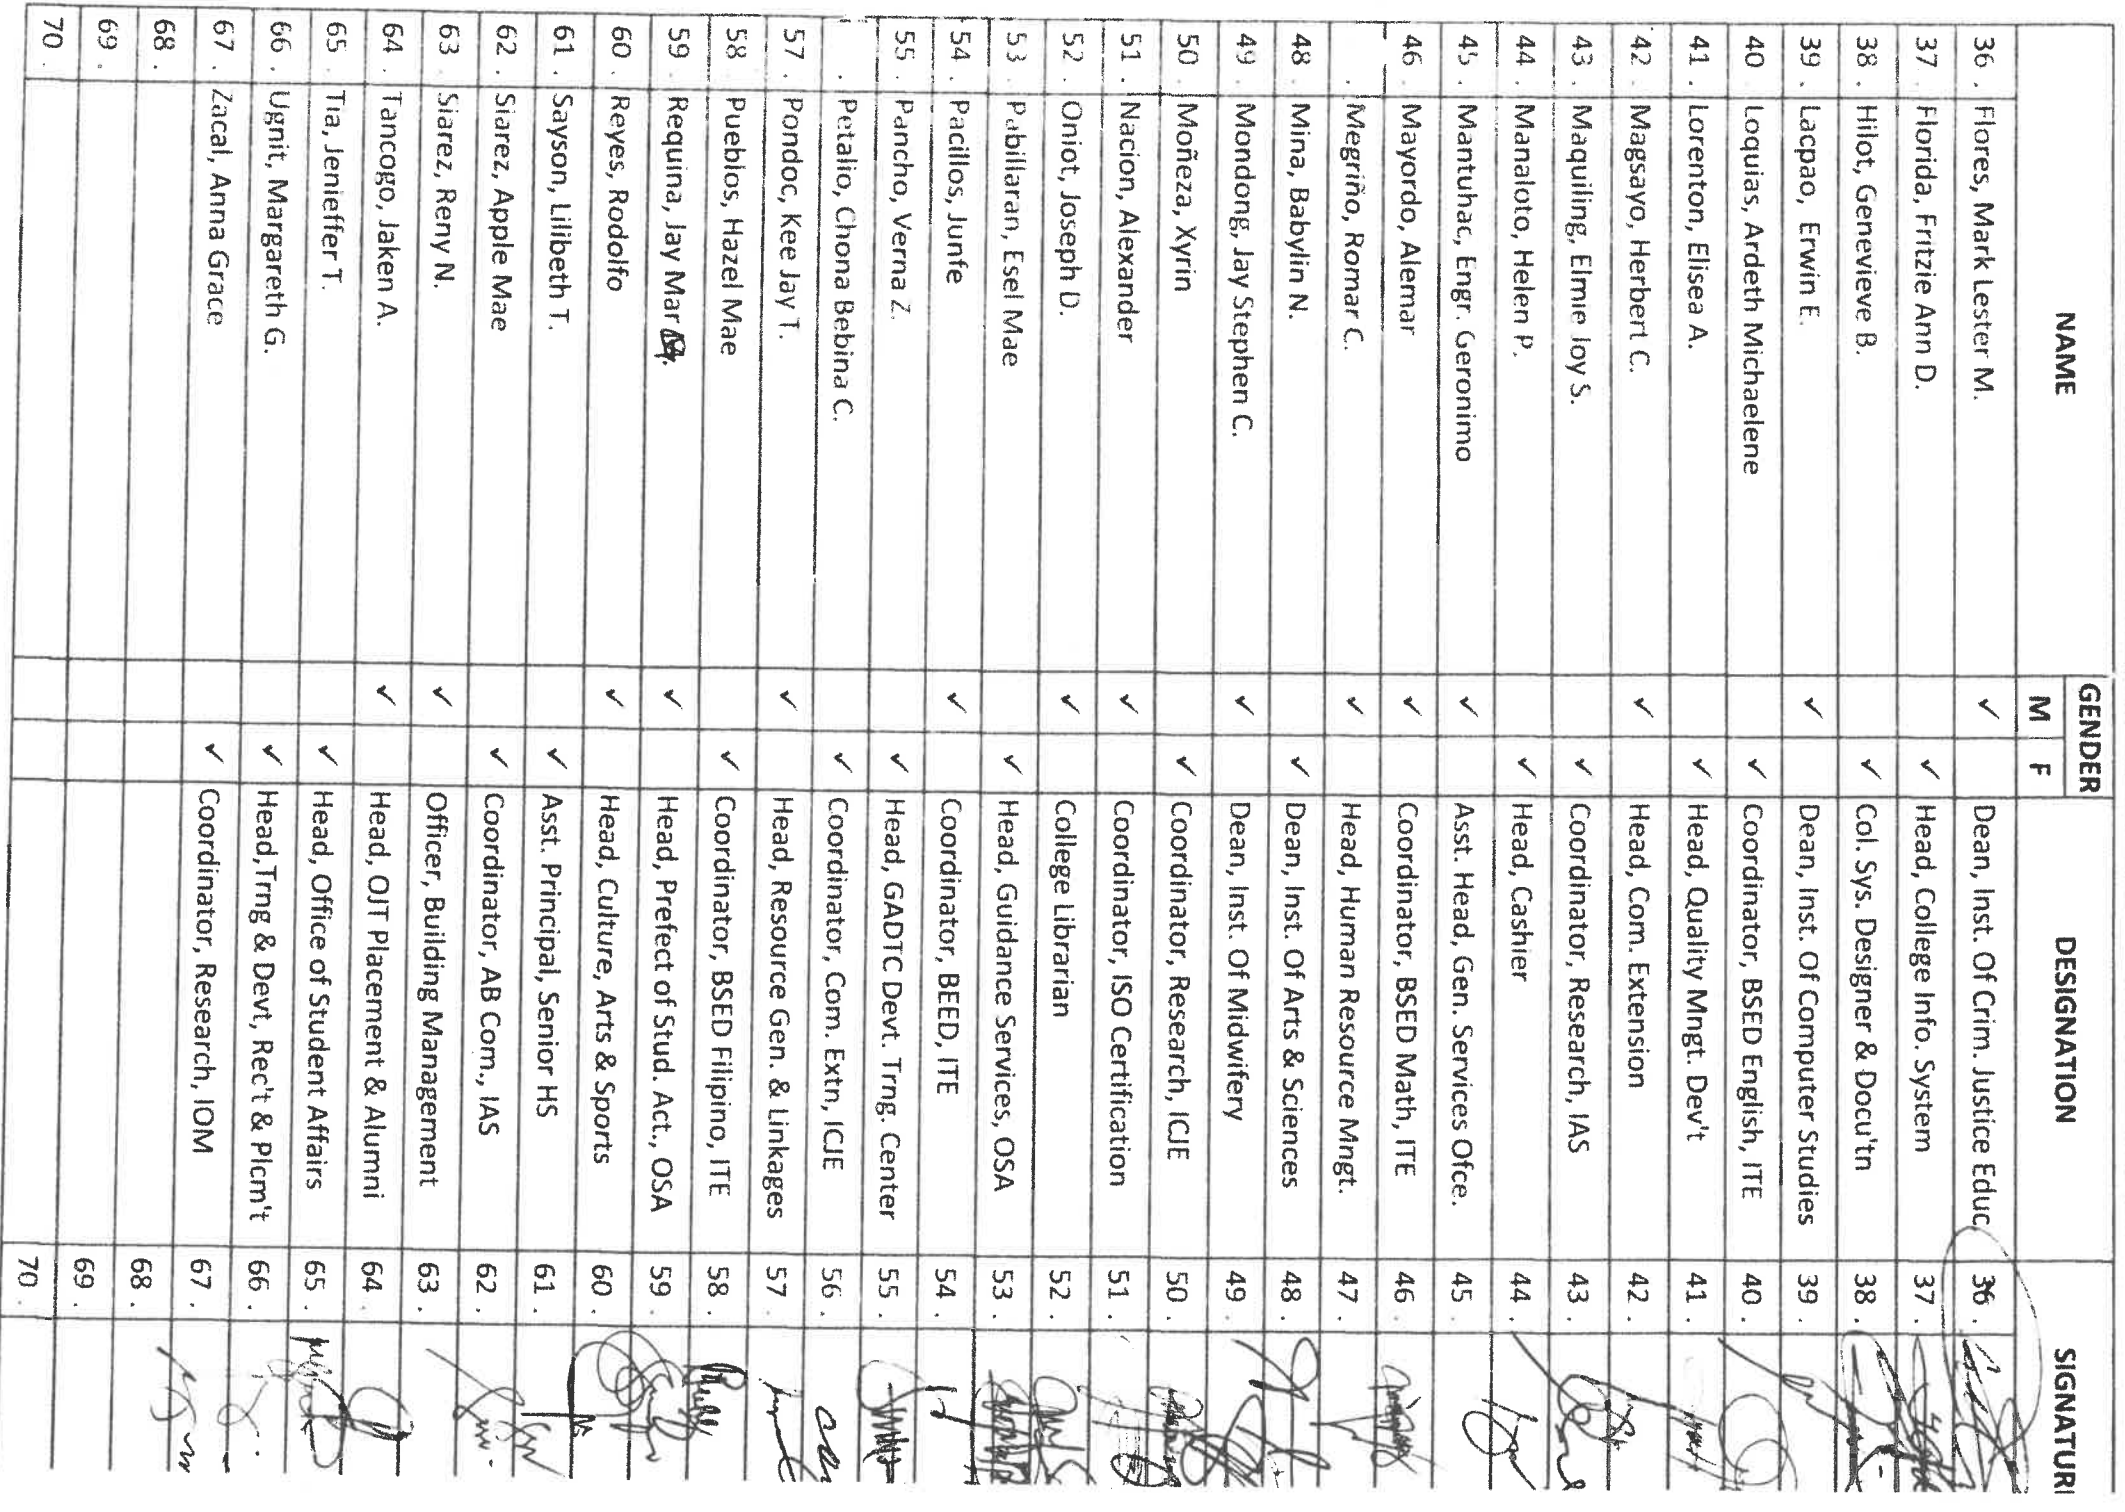 NAME GENDER DESIGNATION SIGNATURE
M F
36 . Flores, Mark Lester M. ✓ Dean, Inst. Of Crim. Justice Educ. 36 .
37 . Florida, Fritzie Ann D. ✓ Head, College Info. System 37 .
38 . Hilot, Genevieve B. ✓ Col. Sys. Designer & Docu'tn 38 .
39 . Lacpao, Erwin E. ✓ Dean, Inst. Of Computer Studies 39 .
40 . Loquias, Ardeth Michaelene ✓ Coordinator, BSED English, ITE 40 .
41 . Lorenton, Elisea A. ✓ Head, Quality Mngt. Dev't 41 .
42 . Magsayo, Herbert C. ✓ Head, Com. Extension 42 .
43 . Maquiling, Elmie Joy S. ✓ Coordinator, Research, IAS 43 .
44 . Manaloto, Helen P. ✓ Head, Cashier 44 .
45 . Mantuhac, Engr. Geronimo ✓ Asst. Head, Gen. Services Ofce. 45 .
46 . Mayordo, Alemar ✓ Coordinator, BSED Math, ITE 46 .
. Megriño, Romar C. ✓ Head, Human Resource Mngt. 47 .
48 . Mina, Babylin N. ✓ Dean, Inst. Of Arts & Sciences 48 .
49 . Mondong, Jay Stephen C. ✓ Dean, Inst. Of Midwifery 49 .
50 . Moñeza, Xyrin ✓ Coordinator, Research, ICJE 50 .
51 . Nacion, Alexander ✓ Coordinator, ISO Certification 51 .
52 . Oniot, Joseph D. ✓ College Librarian 52 .
53 . Pabillaran, Esel Mae ✓ Head, Guidance Services, OSA 53 .
54 . Pacillos, Junfe ✓ Coordinator, BEED, ITE 54 .
55 . Pancho, Verna Z. ✓ Head, GADTC Devt. Trng. Center 55 .
. Petalio, Chona Bebina C. ✓ Coordinator, Com. Extn, ICJE 56 .
57 . Pondoc, Kee Jay T. ✓ Head, Resource Gen. & Linkages 57 .
58 Pueblos, Hazel Mae ✓ Coordinator, BSED Filipino, ITE 58 .
59 . Requina, Jay Mar ✓ Head, Prefect of Stud. Act., OSA 59 .
60 . Reyes, Rodolfo ✓ Head, Culture, Arts & Sports 60 .
61 . Sayson, Lilibeth T. ✓ Asst. Principal, Senior HS 61 .
62 . Siarez, Apple Mae ✓ Coordinator, AB Com., IAS 62 .
63 . Siarez, Reny N. ✓ Officer, Building Management 63 .
64 . Tancogo, Jaken A. ✓ Head, OJT Placement & Alumni 64 .
65 . Tia, Jenieffer T. ✓ Head, Office of Student Affairs 65 .
66 . Ugnit, Margareth G. ✓ Head,Trng & Devt, Rec't & Plcm't 66 .
67 . Zacal, Anna Grace ✓ Coordinator, Research, IOM 67 .
68 . 68 .
69 . 69 .
70 . 70 .